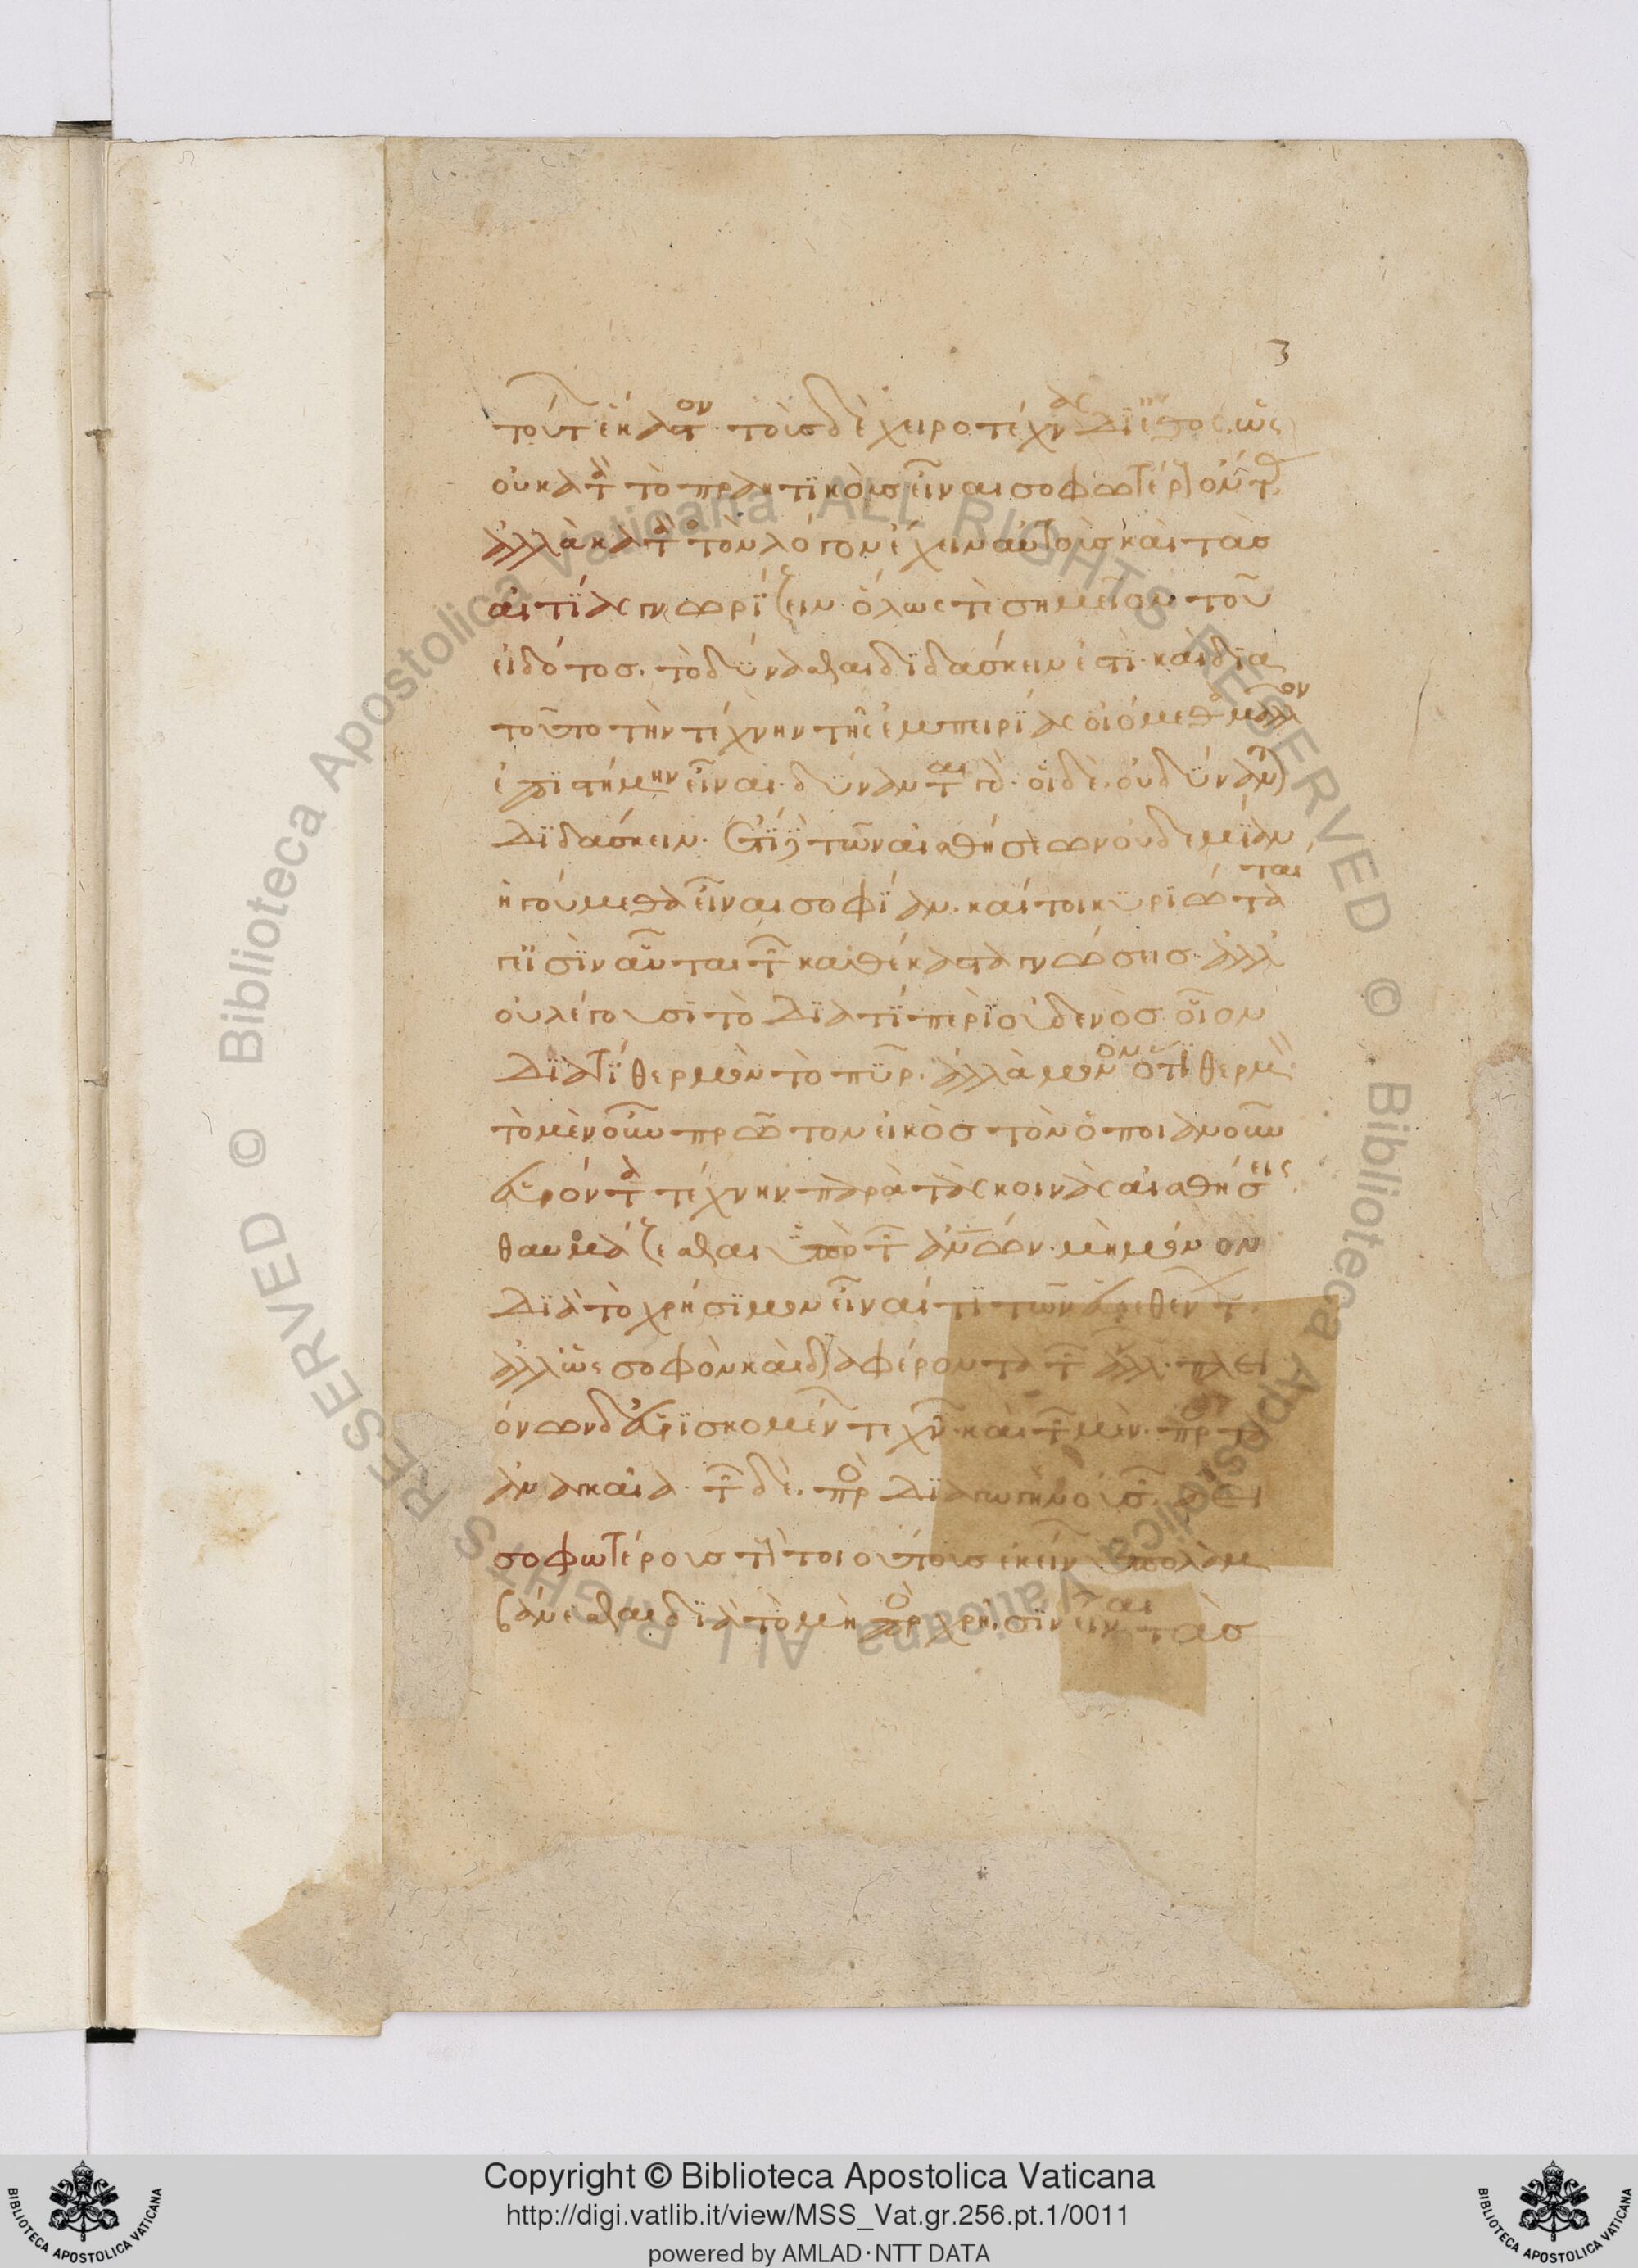 3
τούτ ἕκαστον· τοὺς δὲ χειροτέχνας δι ἔθος. ὡς
οὐ κατὰ τὸ πρακτικοὺς εἶναι σοφωτέρους ὄντας.
ἀλλὰ κατὰ τὸ τὸν λόγον ἔχειν αὐτοὺς καὶ τὰς
αἰτίας γνωρίζειν· ὅλως τὲ σημεῖον τοῦ
εἰδότος. τὸ δύνασθαι διδάσκειν ἐστί· καὶ δϊα
τοῦτο τὴν τέχνην τῆς ἐμπειρίας οἰόμεθα μᾶλλον
ἐπιστήμην εἶναι· δύνανται γὰρ· οἱ δὲ. οὐ δύνανται
διδάσκειν. ἔτι δὲ τῶν αἰσθήσεων οὐδεμίαν
ἡγούμεθα εἶναι σοφίαν. καίτοι κυριώταταί
γέ ισὶν αὗται τῶν καθέκαστα γνώσεις· ἀλλ
οὐ λέγουσι τὸ διατί περὶ οὐδενὸς· οἷον
διατί θερμὸν τὸ πῦρ. ἀλλὰ μόνον ὅτι θερμόν
τὸ μὲν οὖν πρῶτον εἰκὸς τὸν ὁποιανοῦν
εὑρόντα τέχνην παρὰ τὰς κοινὰς αἰσθήσεις
θαυμάζεσθαι ὑπὸ τῶν ἀνθρώπων. μὴ μόνον
διὰ τὸ χρήσιμον εἶναί τι τῶν εὑρεθέντων.
ἀλλ ὡς σοφὸν καὶ διαφέροντα τῶν ἄλλων· πλει
όνων δ εὑρισκομένων τεχνῶν· καὶ τῶν μὲν. πρὸς τὰ
ἀναγκαῖα· τῶν δὲ. πρὸς διαγωγὴν οὐσῶν. ἀεὶ
σοφωτέρους τοὺς τοιούτους ἐκείνων ὑπολαμ
βάνεσθαι διὰ τὸ μὴ πρὸς χρῆσιν εἶναι τὰς
Copyright © Biblioteca Apostolica Vaticana
http://digi.vatlib.it/view/MSS_Vat.gr.256.pt.1/0011
powered by AMLAD·NTT DATA
BIBLIOTECA APOSTOLICA VATICANA
BIBLIOTECA APOSTOLICA VATICANA
© Biblioteca Apostolica Vaticana ALL RIGHTS RESERVED
© Biblioteca Apostolica Vaticana ALL RIGHTS RESERVED